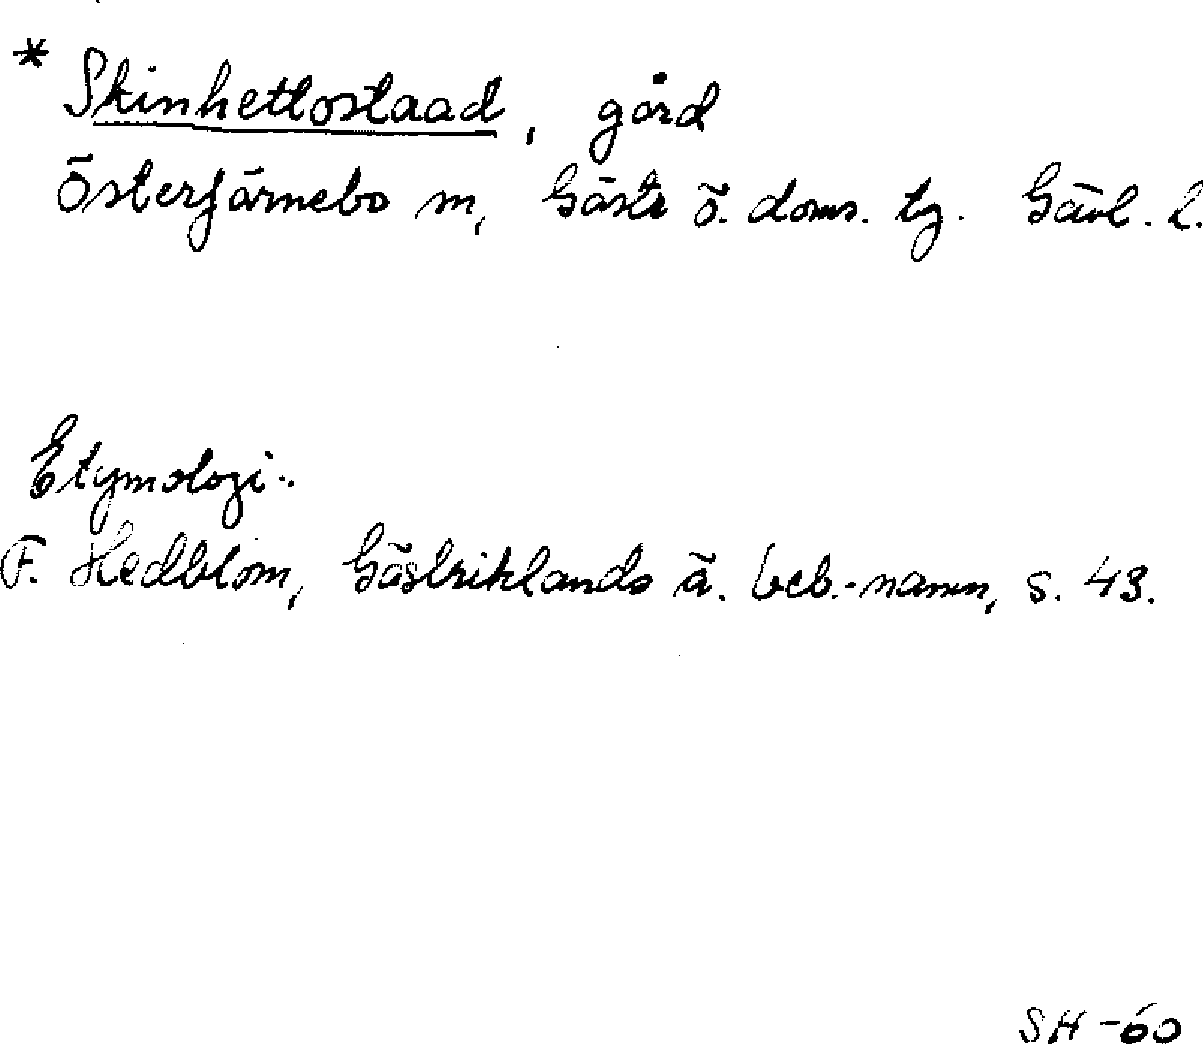 * Skinhettostaad, gård
Österfärnebo sn, Gästr ö. doms. tg. Gävl. l.
Etymologi:
F. Hedblom, Gästriklands ä. beb.-namn, s. 43.
SH-60